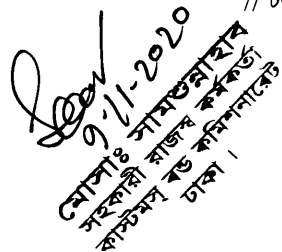 9-11-2020
মোসাঃ সামছুন্নাহার
সহকারী রাজস্ব কর্মকর্তা
কাস্টমস্ বন্ড কমিশনারেট
ঢাকা।